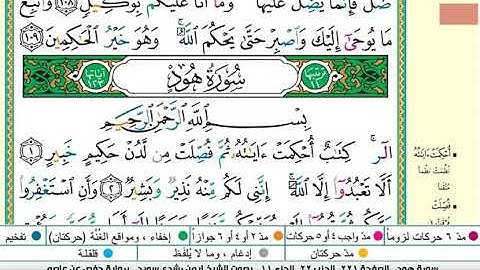 ضَلَّ فَإِنَّمَا يَضِلُّ عَلَيْهَا ۖ وَمَآ أَنَا۠ عَلَيْكُم بِوَكِيلٍ ١٠٨ وَٱتَّبِعْ
مَا يُوحَىٰٓ إِلَيْكَ وَٱصْبِرْ حَتَّىٰ يَحْكُمَ ٱللَّهُ ۚ وَهُوَ خَيْرُ ٱلْحَٰكِمِينَ ١٠٩
ترتيبها ١١ سُورَةُ هُودٍ آياتها ١٢٣
بِسْمِ ٱللَّهِ ٱلرَّحْمَٰنِ ٱلرَّحِيمِ
الٓر ۚ كِتَٰبٌ أُحْكِمَتْ ءَايَٰتُهُۥ ثُمَّ فُصِّلَتْ مِن لَّدُنْ حَكِيمٍ خَبِيرٍ ١
أَلَّا تَعْبُدُوٓا۟ إِلَّا ٱللَّهَ ۚ إِنَّنِى لَكُم مِّنْهُ نَذِيرٌ وَبَشِيرٌ ٢ وَأَنِ ٱسْتَغْفِرُوا۟
أُحْكِمَتْ ءَايَٰتُهُ
نُظِمَتْ نَظْمًا
مُتْقَنًا
فُصِّلَتْ
مدّ ٦ حركات لزوماً مدّ واجب ٤ أو ٥ حركات مدّ ٢ أو ٤ أو ٦ جوازاً إخفاء، ومواقع الغُنَّة (حركتان) تفخيم
مدّ حركتان إدغام، وما لا يُلفَظ قلقلة